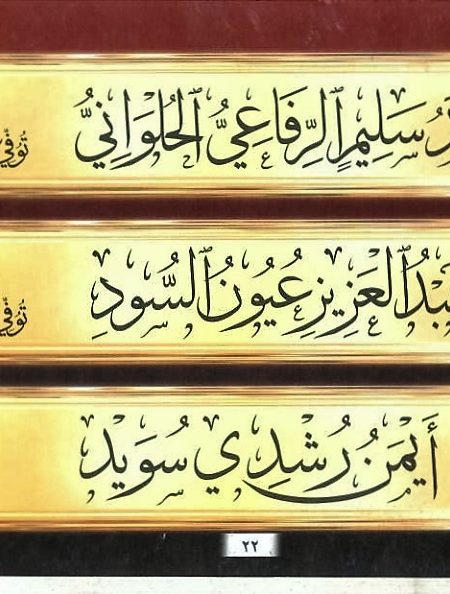 سَلِيمٍ ٱلرِّفَاعِيُّ ٱلْحُلْوَانِيُّ تُوُفِّيَ
ٱلْعَزِيزِ عُيُونُ ٱلسُّودِ تُوُفِّيَ
أَيْمَنُ رُشْدِي سُوَيْد
٢٢